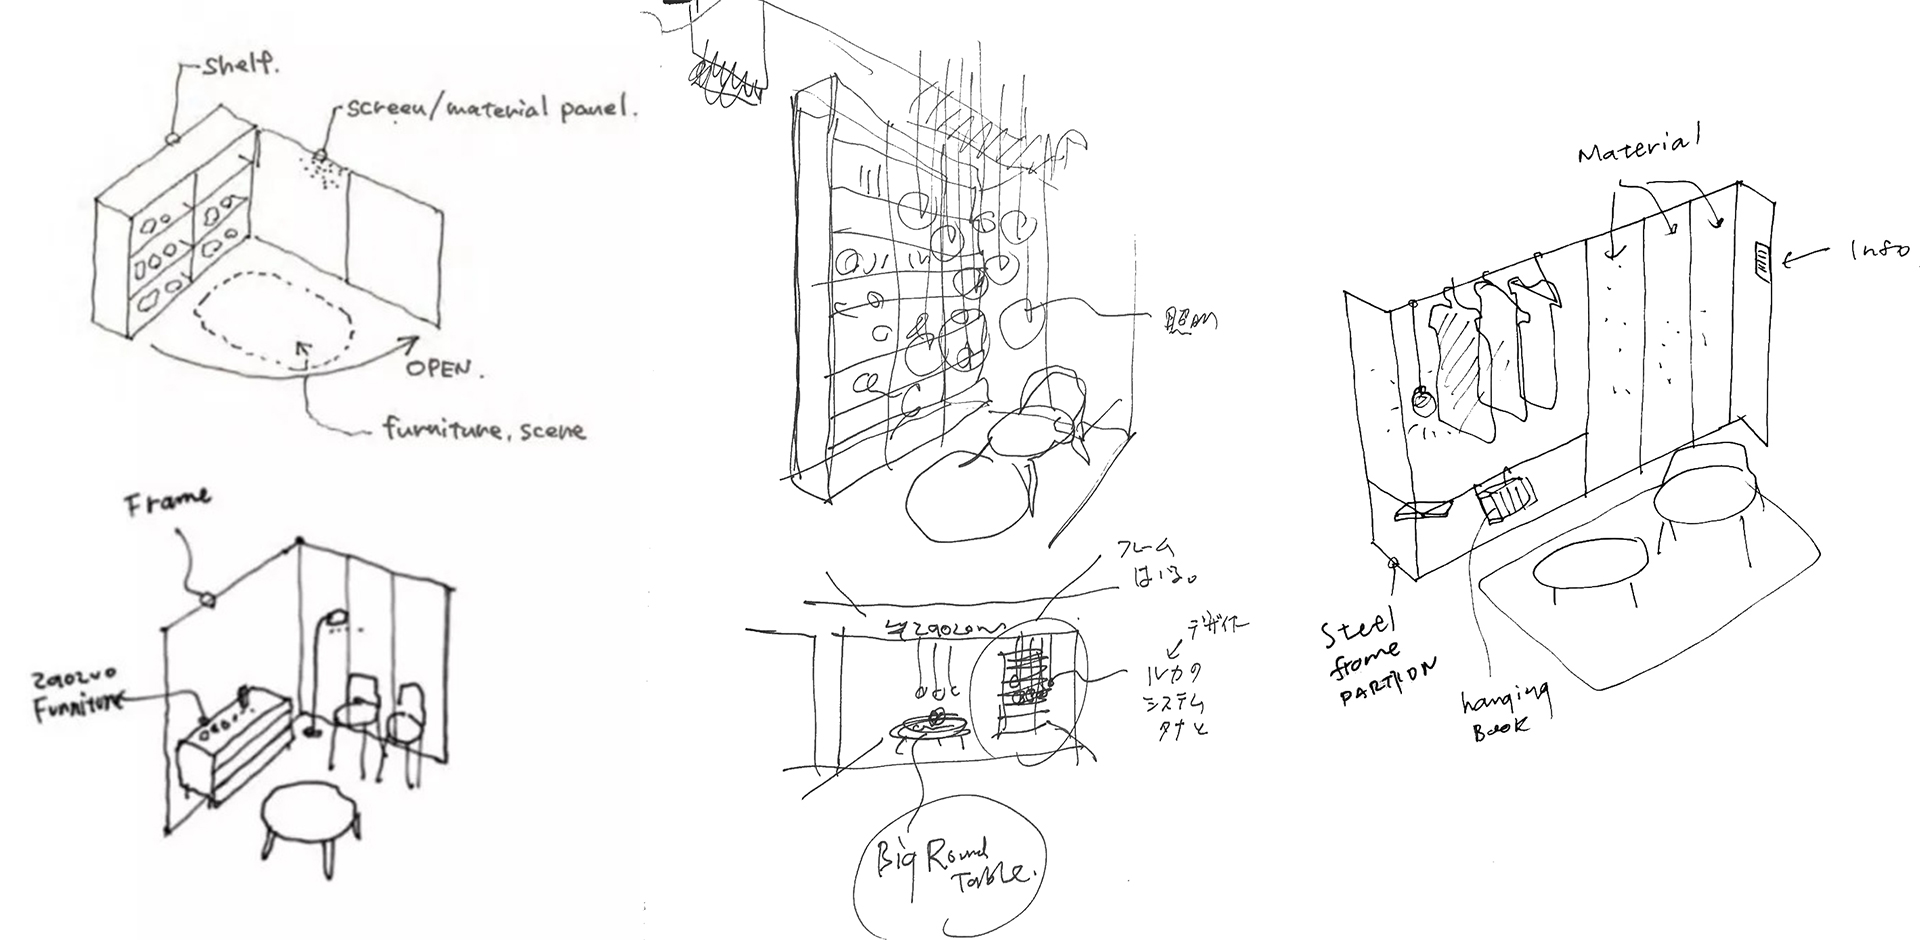 shelf.
screen/material panel.
OPEN.
furniture, scene
Frame
zaozuo
Furniture
照明
フレーム
はいる。
zaozuo
デザイナー
ルカの
システム
タナと
Big Round
Table.
Material
Info
Steel
frame
PARTITION
hanging
Book